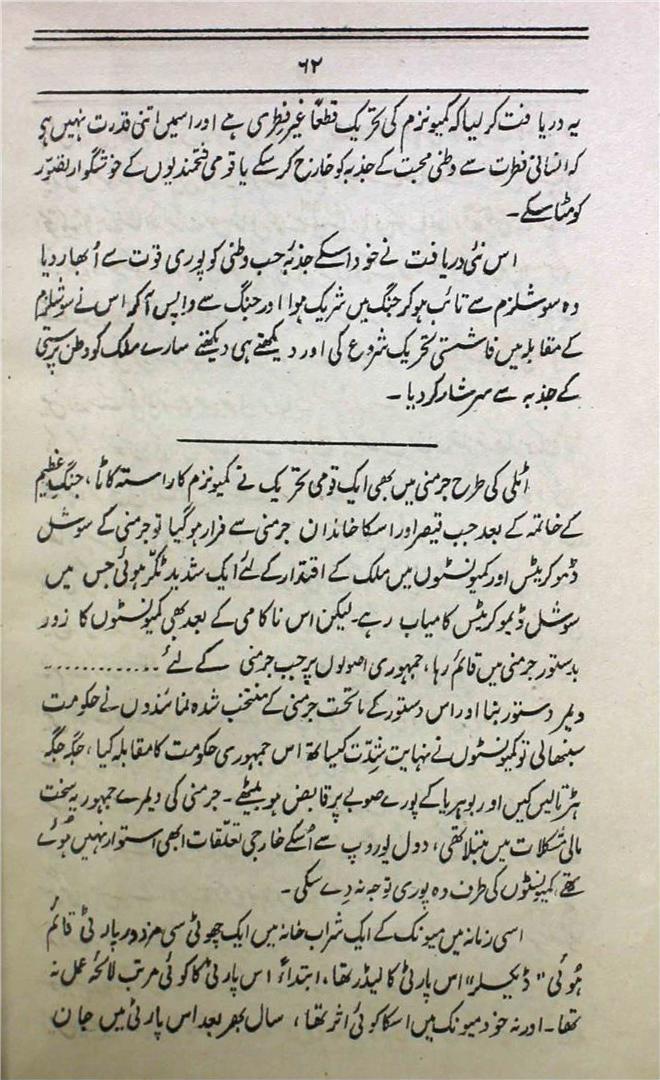 ۶۲
یہ دریافت کر لیا کہ کمیونزم کی تحریک قطعاً غیر فطری ہے اور اسمیں اتنی قدرت نہیں ہی
کہ انسانی فطرت سے وطنی محبت کے جذبہ کو خارج کر سکے یا قومی فتحمندیوں کے خوشگوار تصور
کو مٹا سکے۔
اس نئی دریافت نے خود اسکے جذبۂ حب وطنی کو پوری قوت سے اُبھار دیا
وہ سوشلزم سے تائب ہو کر جنگ میں شریک ہوا اور جنگ سے واپس آکر اس نے سوشلزم
کے مقابلہ میں فاشستی تحریک شروع کی اور دیکھتے ہی دیکھتے سارے ملک کو وطن پرستی
کے جذبہ سے سرشار کر دیا۔
اٹلی کی طرح جرمنی میں بھی ایک قومی تحریک نے کمیونزم کا راستہ کاٹا، جنگ عظیم
کے خاتمہ کے بعد جب قیصر اور اسکا خاندان جرمنی سے فرار ہو گیا تو جرمنی کے سوشل
ڈیموکریٹس اور کمیونسٹوں میں ملک کے اقتدار کے لئے ایک شدید ٹکر ہوئی جس میں
سوشل ڈیموکریٹس کامیاب رہے۔ لیکن اس ناکامی کے بعد بھی کمیونسٹوں کا زور
بدستور جرمنی میں قائم رہا، جمہوری اصولوں پر جب جرمنی کے لئے ............
ویمر دستور بنا اور اس دستور کے ماتحت جرمنی کے منتخب شدہ نمائندوں نے حکومت
سنبھالی تو کمیونسٹوں نے نہایت شدّت کیساتھ اس جمہوری حکومت کا مقابلہ کیا، جگہ جگہ
ہڑتالیں کیں اور بوہریا کے پورے صوبے پر قابض ہو بیٹھے۔ جرمنی کی ویمرے جمہوریہ سخت
مالی مشکلات میں مبتلا تھی، دول یوروپ سے اُسکے خارجی تعلقات ابھی استوار نہیں ہُوئے
تھے، کمیونسٹوں کی طرف وہ پوری توجہ نہ دے سکی۔
اسی زمانہ میں میونک کے ایک شراب خانہ میں ایک چھوٹی سی مزدور پارٹی قائم
ہُوئی "ڈیکسلر" اس پارٹی کا لیڈر تھا، ابتداءً اس پارٹی کا کوئی مرتب لائحہ عمل نہ
تھا۔ اور نہ خود میونک میں اسکا کوئی اثر تھا، سال بھر بعد اس پارٹی میں جان